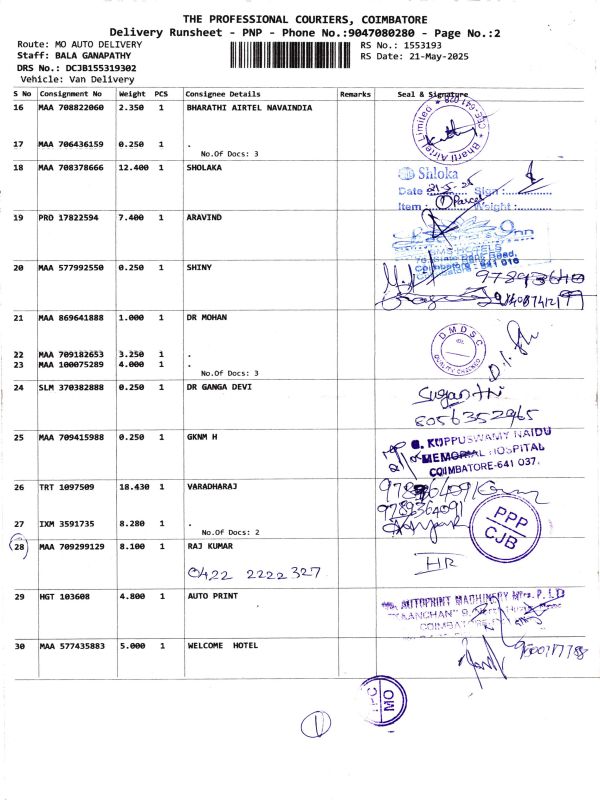 THE PROFESSIONAL COURIERS, COIMBATORE
Delivery Runsheet - PNP - Phone No.:9047080280 - Page No.:2
Route: MO AUTO DELIVERY
RS No.: 1553193
Staff: BALA GANAPATHY
RS Date: 21-May-2025
DRS No.: DCJB155319302
Vehicle: Van Delivery
S No Consignment No Weight PCS Consignee Details Remarks Seal & Signature
16 MAA 708822060 2.350 1 BHARATHI AIRTEL NAVAINDIA
Bharti Airtel Limited * CES-641 028 *
17 MAA 706436159 0.250 1 .
No.Of Docs: 3
18 MAA 708378666 12.400 1 SHOLAKA
Shloka
Date 21-5-25 Sign :
Item : 1 Parcel Weight:
19 PRO 17822594 7.400 1 ARAVIND
Coimbatore - 641 016
20 MAA 577992550 0.250 1 SHINY
21 MAA 869641888 1.000 1 DR MOHAN
DMDSC
QUALITY CHECKED
22 MAA 709182653 3.250 1 .
23 MAA 100075289 4.000 1 .
No.Of Docs: 3
24 SLM 370382888 0.250 1 DR GANGA DEVI
Suganthi
8056352965
25 MAA 709415988 0.250 1 GKNM H
G. KUPPUSWAMY NAIDU
MEMORIAL HOSPITAL
COIMBATORE-641 037.
26 TRT 1097509 18.430 1 VARADHARAJ
9789364091
9789364091
27 IXM 3591735 8.280 1 .
No.Of Docs: 2
PPP
CJB
28 MAA 709299129 8.100 1 RAJ KUMAR
HR
0422 2222 327
29 HGT 103608 4.800 1 AUTO PRINT
AUTOPRINT MACHINERY Mfrs. P. LTD
COIMBATORE
30 MAA 577435883 5.000 1 WELCOME HOTEL
MO
1